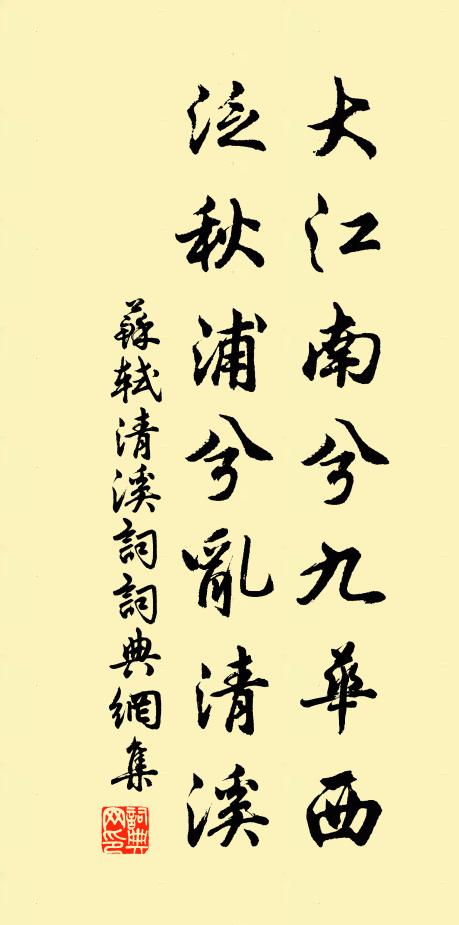 大江南兮九華西
泛秋浦兮亂清溪
蘇軾清溪詞詞典網集
詞典網印